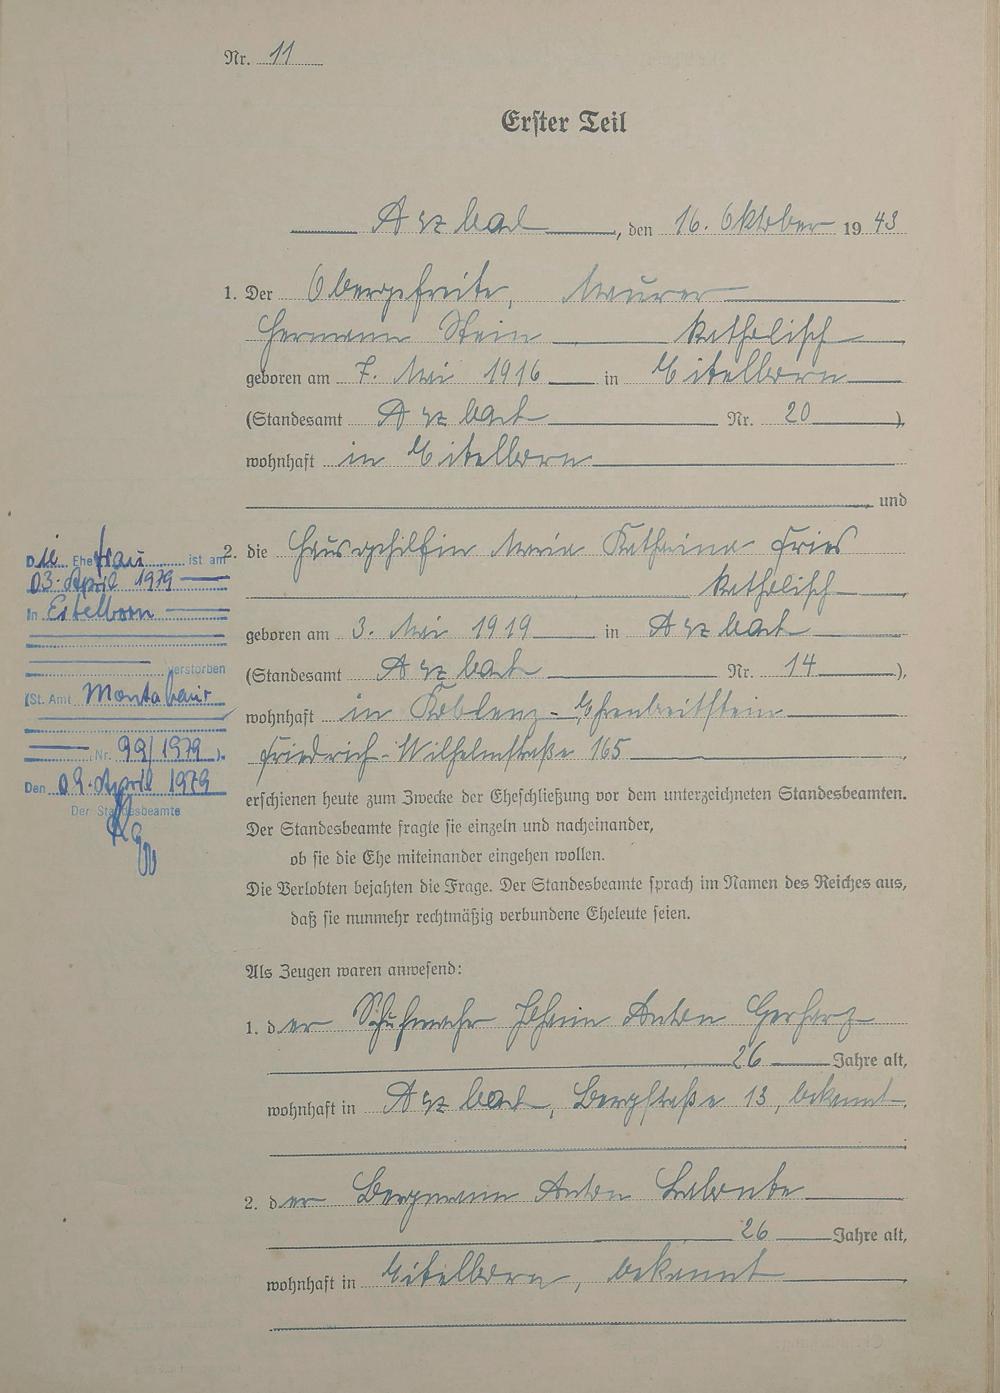 Nr. 11
Erster Teil
Arzbach, den 16. Oktober 1943
1. Der Obergefreite, Maurer
Hermann Stein katholisch
geboren am 7. Mai 1916 in Eitelborn
(Standesamt Arzbach Nr. 20),
wohnhaft in Eitelborn
und
2. die Hausgehilfin Maria Katharina Fries
katholisch
geboren am 3. Mai 1919 in Arzbach
(Standesamt Arzbach Nr. 14),
wohnhaft in Koblenz-Ehrenbreitstein
Friedrich-Wilhelmstraße 165
erschienen heute zum Zwecke der Eheschließung vor dem unterzeichneten Standesbeamten.
Der Standesbeamte fragte sie einzeln und nacheinander,
ob sie die Ehe miteinander eingehen wollen.
Die Verlobten bejahten die Frage. Der Standesbeamte sprach im Namen des Reiches aus,
daß sie nunmehr rechtmäßig verbundene Eheleute seien.
Als Zeugen waren anwesend:
1. der Johann Anton Gerharz
26 Jahre alt,
wohnhaft in Arzbach, Bergstraße 13, bekannt
2. der Bergmann Anton Labonte
26 Jahre alt,
wohnhaft in Eitelborn, bekannt
Die Ehefrau ist am
03. April 1979
in Eitelborn
verstorben
(St. Amt Montabaur
Nr. 99/1979).
Den 09. April 1979
Der Standesbeamte